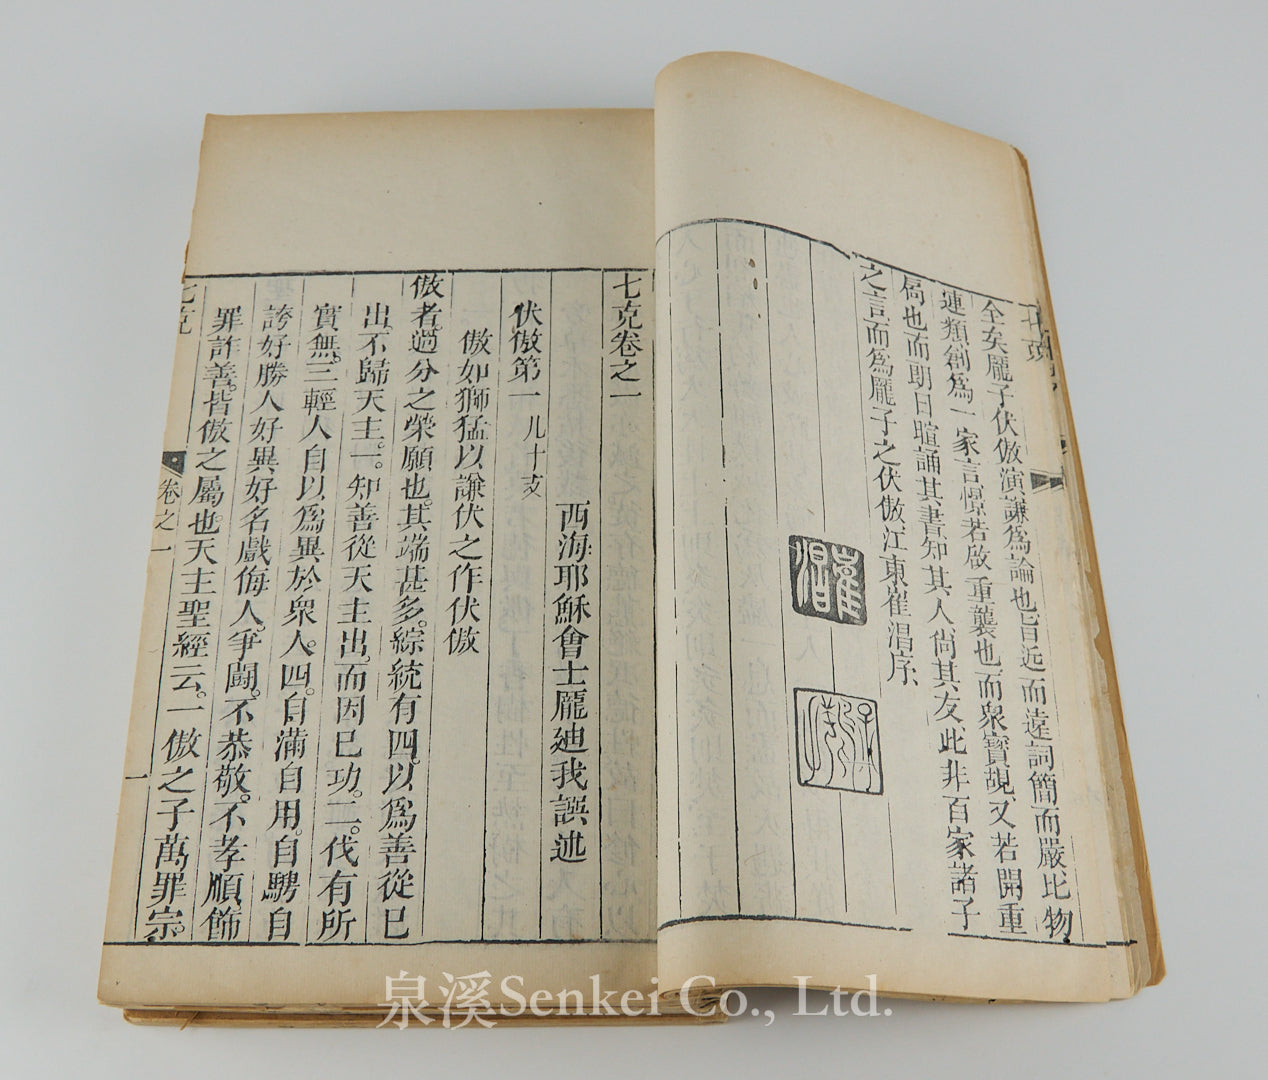 全矣龐子伏傲演謙為論也旨近而遠詞簡而嚴比物
連類創為一家言憬若啟重襲也而衆寶覩又若開重
扄也而期日暄誦其書知其人尚其友此非百家諸子
之言而為龐子之伏傲江東崔淐序
崔淐
七克卷之一
西海耶穌會士龐迪我譔述
伏傲第一 凡十支
傲如獅猛以謙伏之作伏傲
傲者。過分之榮願也。其端甚多。綜統有四。以為善從已
出。不歸天主。一。知善從天主出。而因已功。二。伐有所
實無。三。輕人自以為異於衆人。四。自滿自用。自騁自
誇好勝人好異好名戲侮人。爭鬬。不恭敬。不孝順飾
罪詐善。皆傲之屬也。天主聖經云。一傲之子萬罪宗。
七克
卷之一
一
泉溪Senkei Co., Ltd.